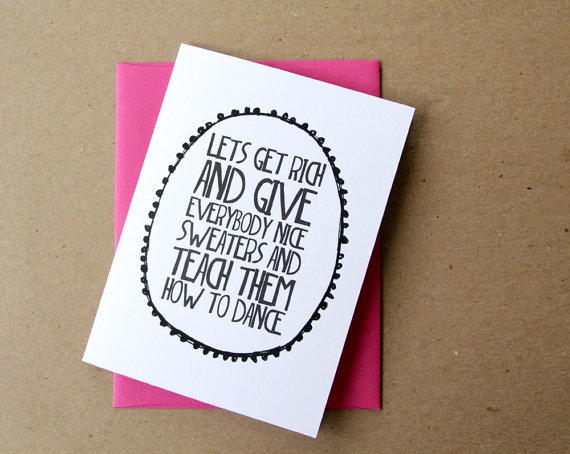 LETS GET RICH
AND GIVE
EVERYBODY NICE
SWEATERS AND
TEACH THEM
HOW TO DANCE